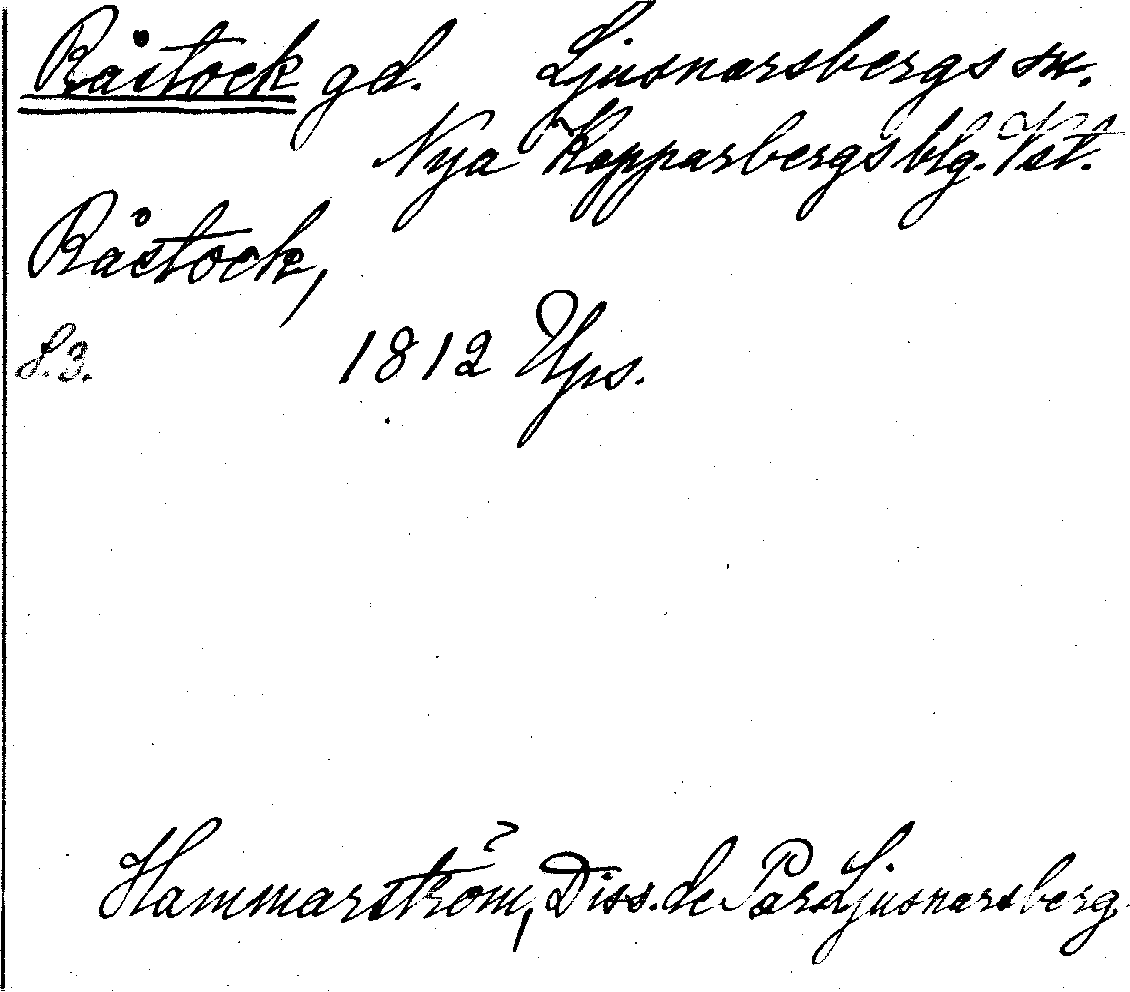 Råstock gd. Ljusnarsbergs sn.
Nya Kopparbergs blg. Vst.
Råstock,
s.3. 1812 Ups.
Hammarström, Diss. de Par Ljusnarsberg.